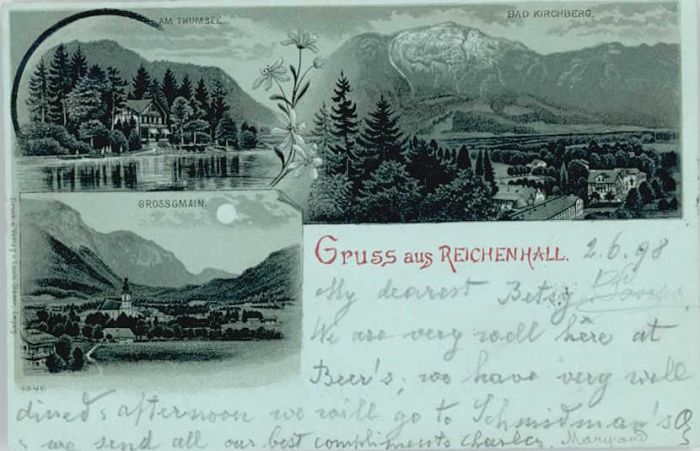 AM THUMSEE.
BAD KIRCHBERG.
GROSSGMAIN.
Gruss aus REICHENHALL. 2.6.98
My dearest Betsy
We are very well here at
Beer's; we have very well
dined; afternoon we will go to Schmidman's
& we send all our best compliments Charley. Mary and
4046